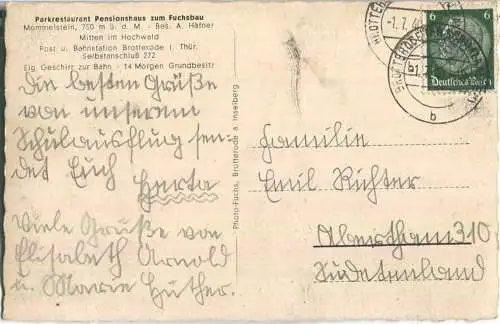 Parkrestaurant Pensionshaus zum Fuchsbau
Mommelstein, 750 m ü. d. M. - Bes. A. Häfner
Mitten im Hochwald
Post u. Bahnstation Brotterode i. Thür.
Selbstanschluß 272
Eig. Geschirr zur Bahn - 14 Morgen Grundbesitz
Die besten Grüße
von unserem
Schulausflug sen-
det Euch Herta
Viele Grüße von
Elisabeth Arnold
u. Marie Huther.
Photo-Fuchs, Brotterode a. Inselberg
6 6
Deutsches Reich
BROTTERODE
-1.7.4
b
Familie
Emil Richter
Abertham 310
Sudetenland